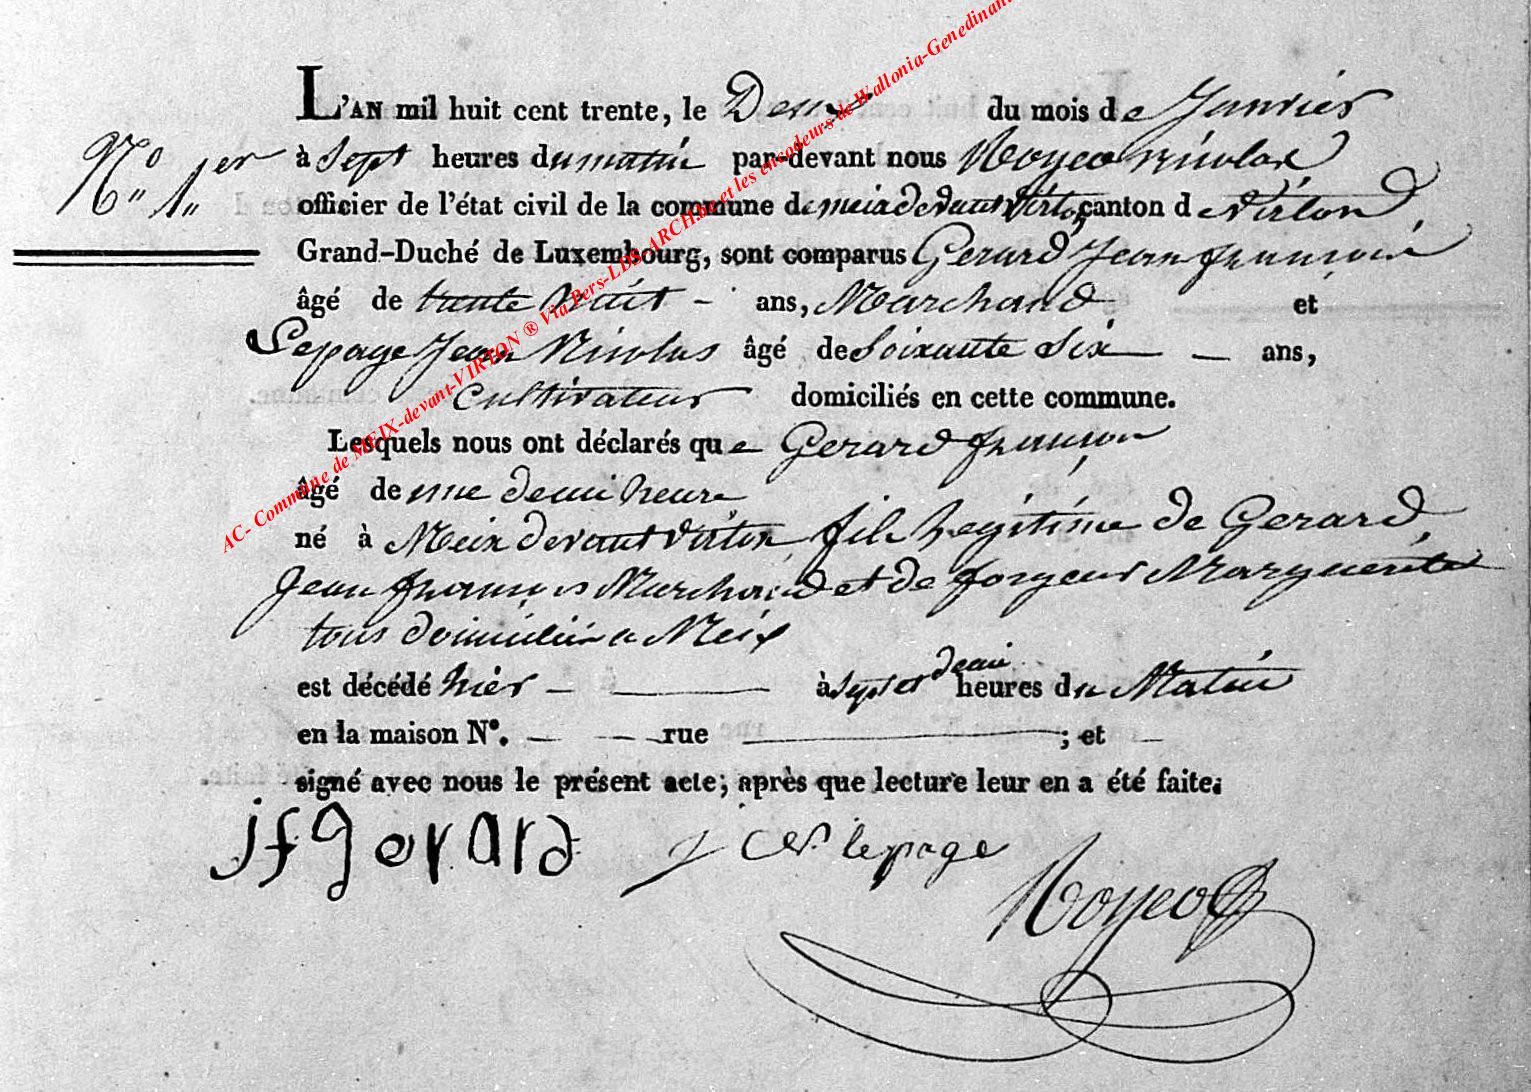 L'AN mil huit cent trente, le Deux du mois de Janvier
N.º 1.er
à Sept heures du matin par-devant nous Noyeo nicolas
officier de l'état civil de la commune de meix devant Virton canton de Virton
Grand-Duché de Luxembourg, sont comparus Gerard Jean françois
âgé de trente huit - ans, Marchand et
Lepage Jean Nicolas âgé de Soixante Six — ans,
cultivateur domiciliés en cette commune.
Lesquels nous ont déclarés que Gerard françois
âgé de une demi heure
né à Meix devant virton, fils legitime de Gerard
Jean françois Marchand et de forgeur Marguerite
tous domicilié a Meix
est décédé hier — — à sept et demi heures du Matin
en la maison Nº. — — rue — ; et —
signé avec nous le présent acte; après que lecture leur en a été faite.
jf gerard J lepage
Noyeo
AC- Commune de MEIX-devant-VIRTON ® Via Pers-LDS-ARCH.be et les encodeurs de Wallonia-Genedinant